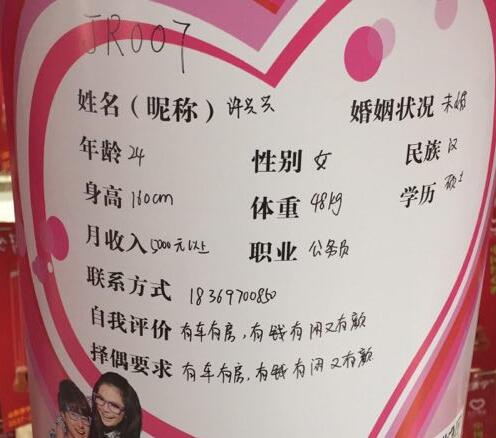 JR007
姓名（昵称）许多多 婚姻状况 未婚
年龄 24 性别 女 民族 汉
身高 160cm 体重 48kg 学历 硕士
月收入 5000元以上 职业 公务员
联系方式 18369700850
自我评价 有车有房,有钱有闲又有颜
择偶要求 有车有房,有钱有闲又有颜